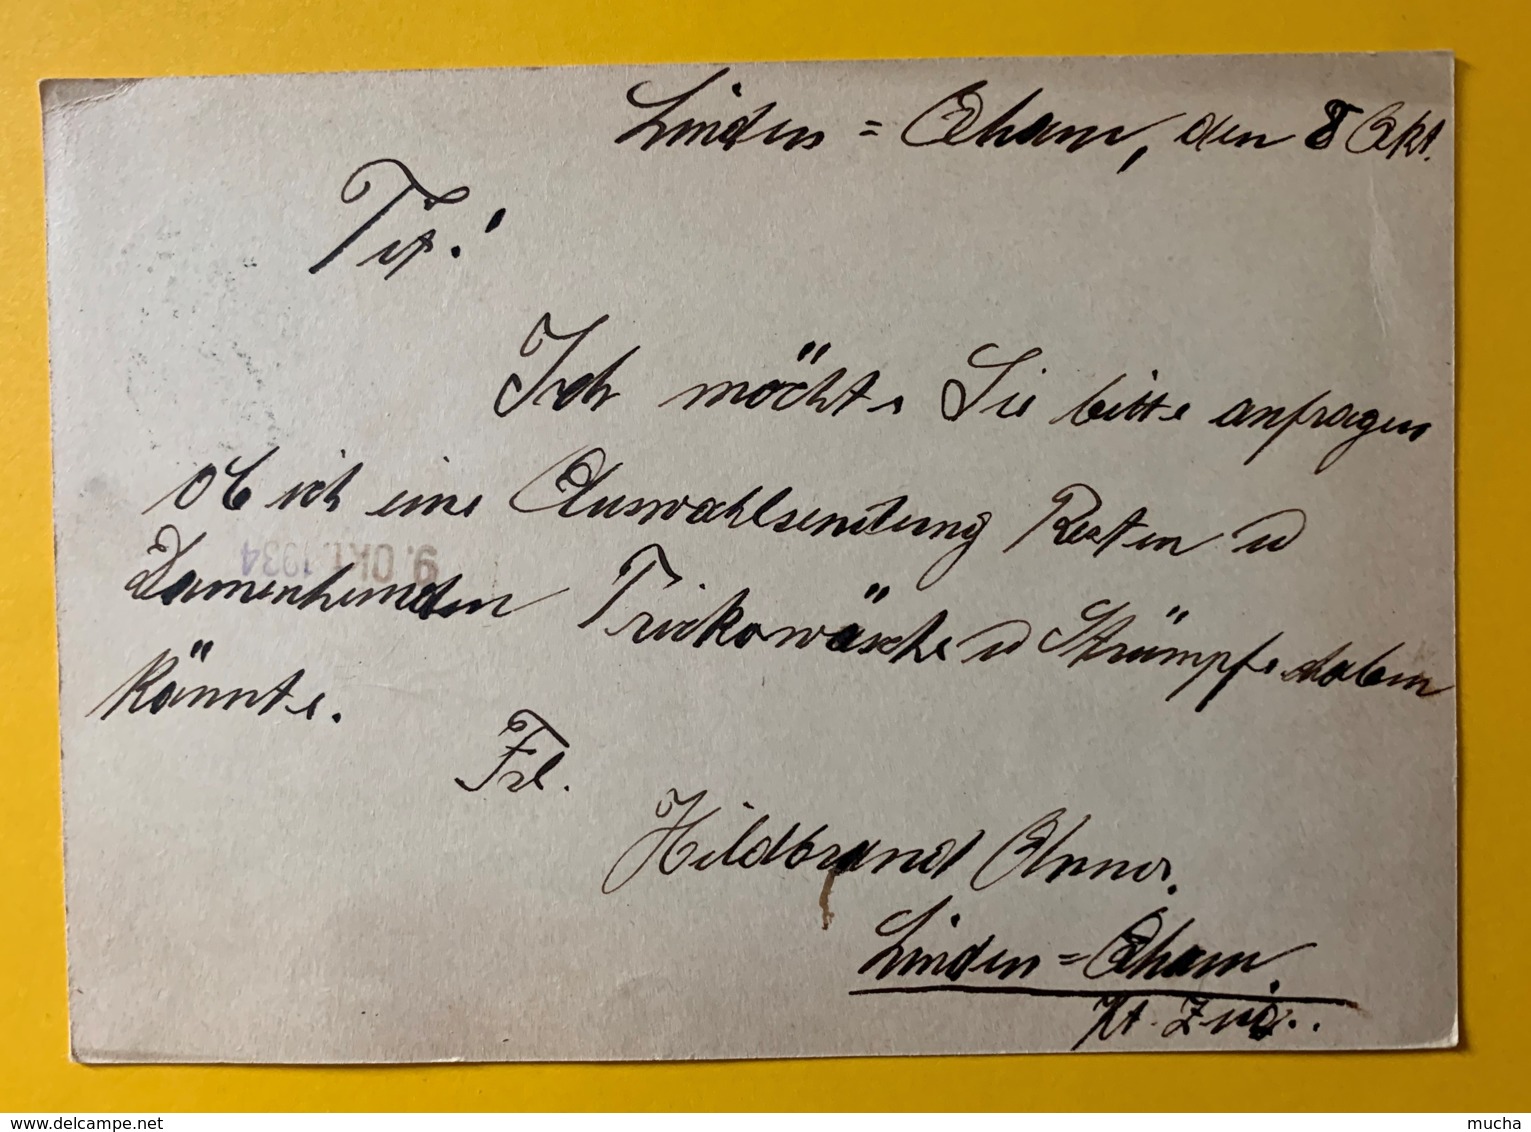 Linden = Cham, den 8 Okt.
Tit.!
Ich möchte Sie bitte anfragen
ob ich eine Auswahlsendung Resten u
9. OKT. 1934
Damenhemden Trickowäsche u Strümpfe haben
könnte.
Frl.
Hildbrand Anna.
Linden = Cham.
Kt. Zug.
mucha